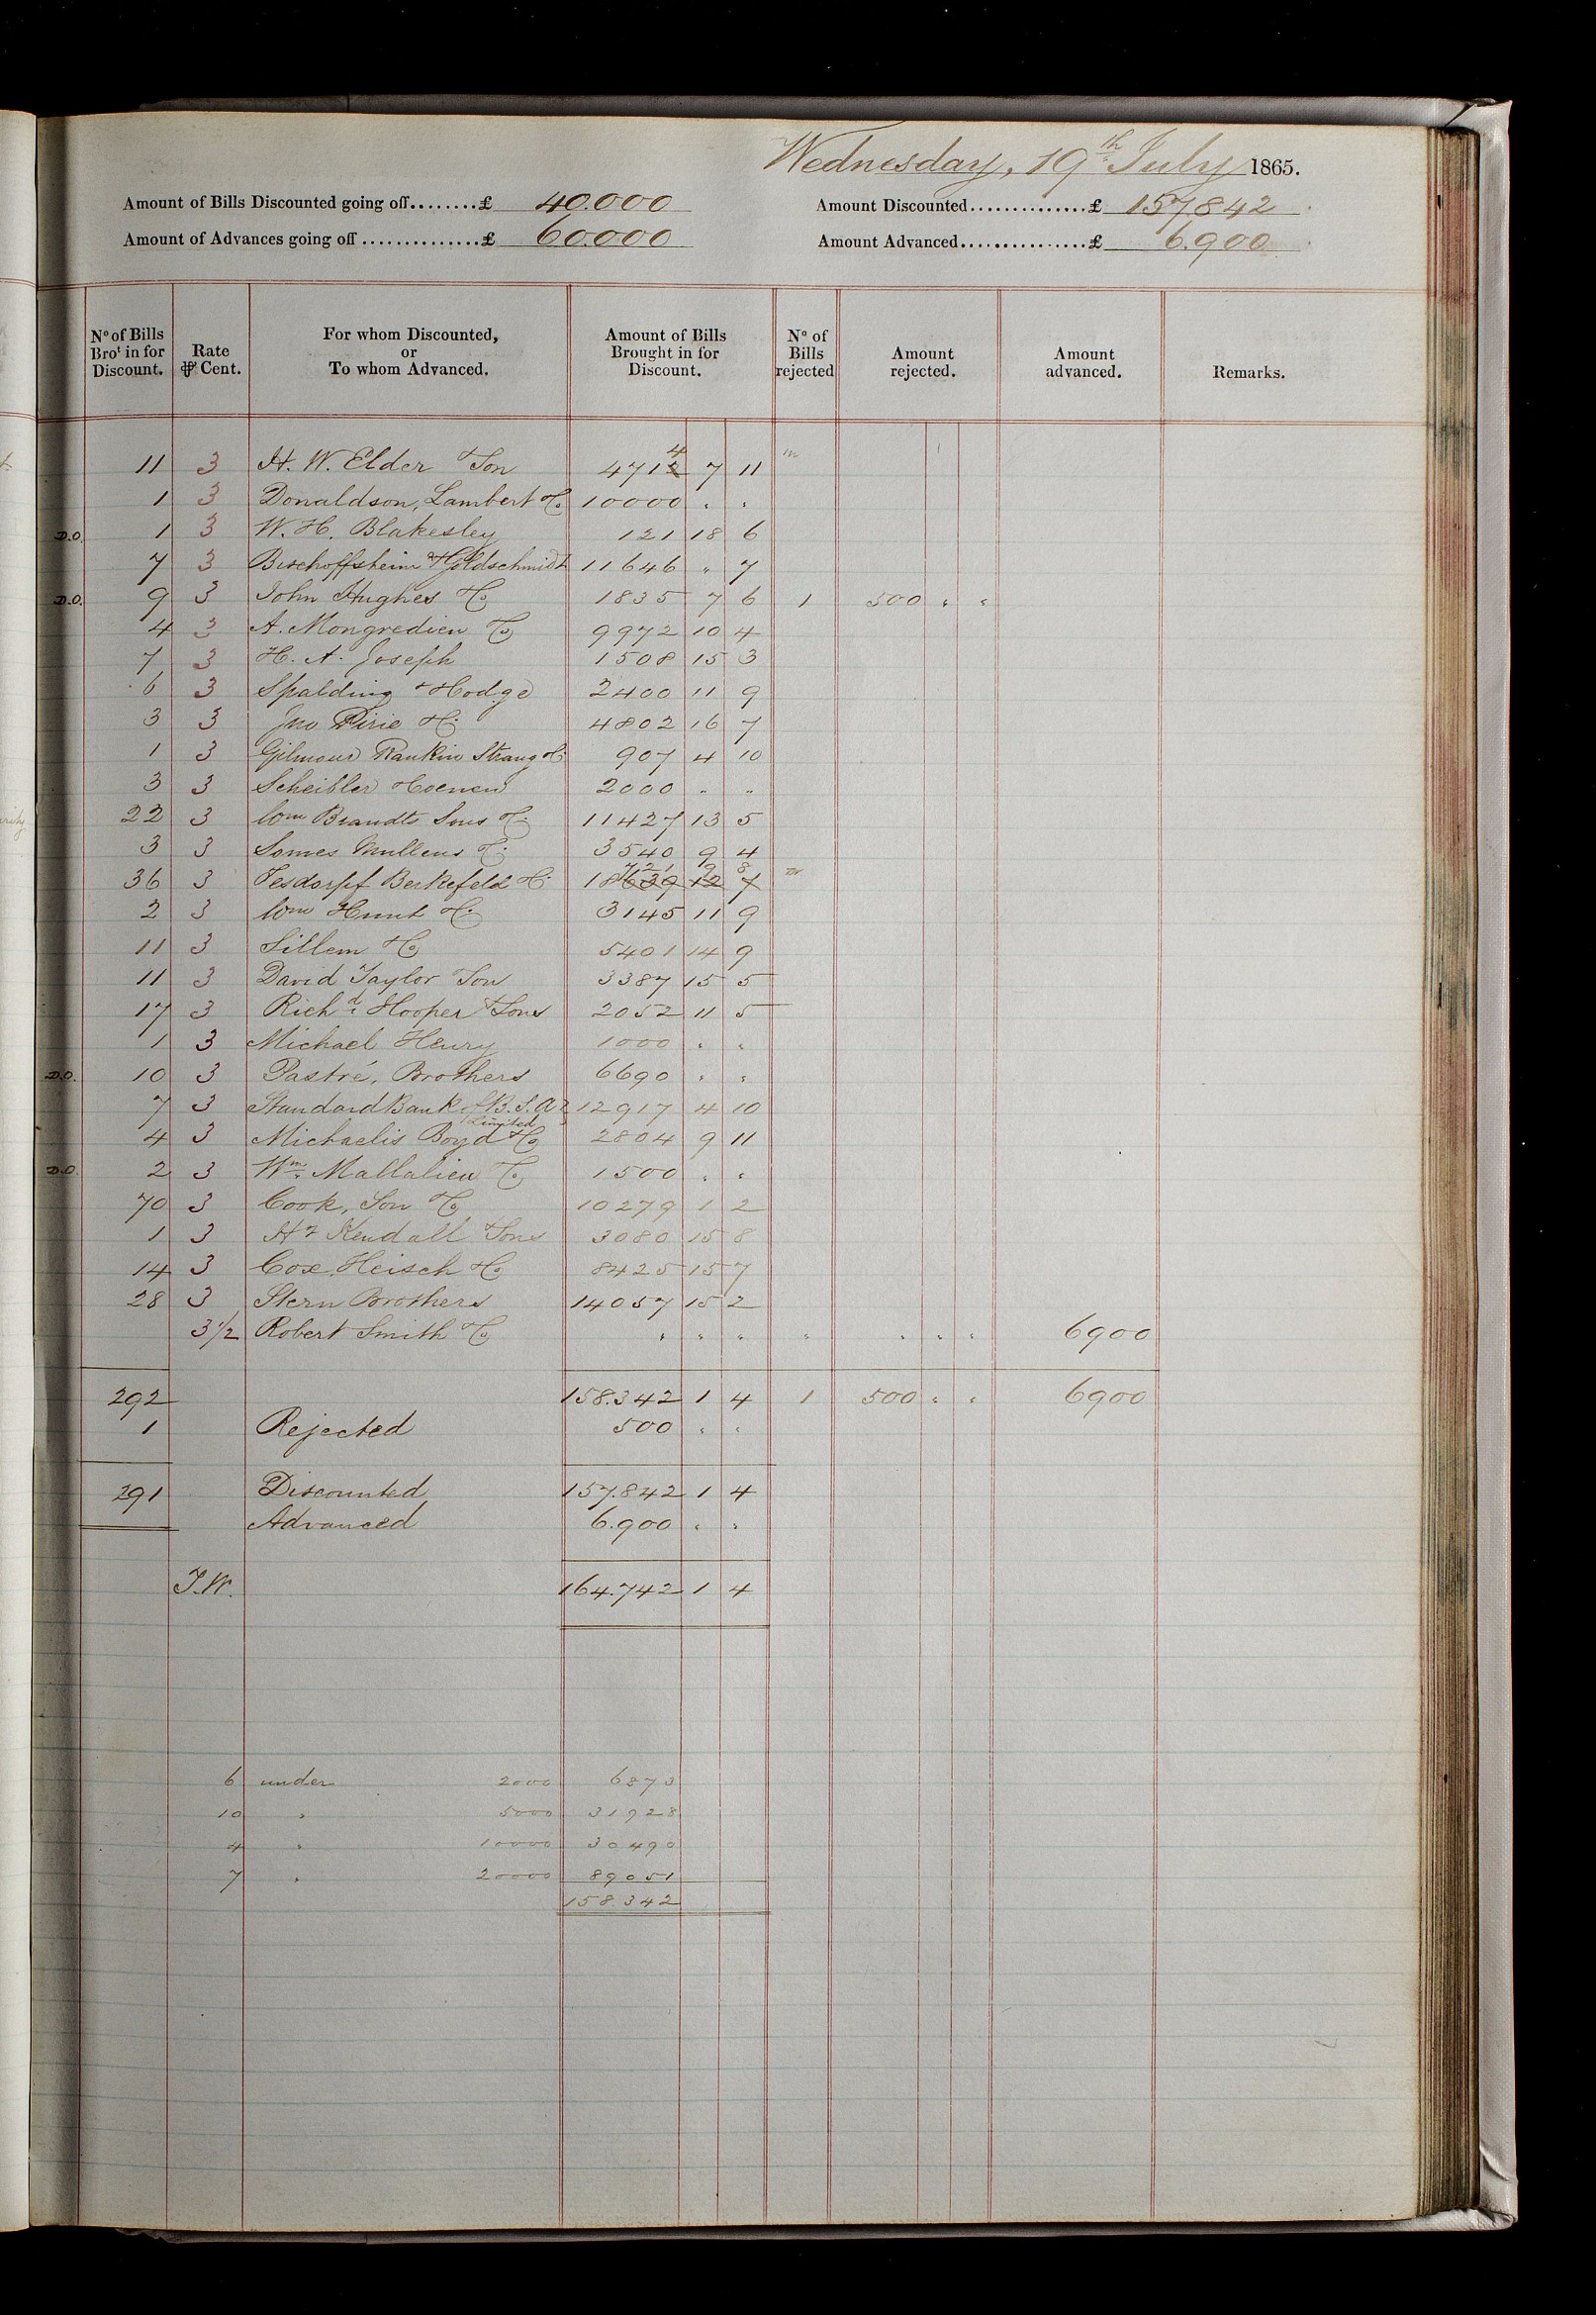 Wednesday, 19th July 1865.
Amount of Bills Discounted going off........£ 40.000 Amount Discounted..............£ 157,842
Amount of Advances going off..............£ 60.000 Amount Advanced................£ 6.900
No of Bills Brot in for Discount. Rate ⅌ Cent. For whom Discounted, or To whom Advanced. Amount of Bills Brought in for Discount. No of Bills rejected Amount rejected. Amount advanced. Remarks.
11 3 H. W. Elder & Son 4714 7 11
1 3 Donaldson, Lambert & Co 10000 " "
D.O. 1 3 W. H. Blakesley 121 18 6
7 3 Bischoffsheim & Goldschmidt 11646 " 7
D.O. 9 3 John Hughes & Co 1835 7 6 1 500 " "
4 3 A. Mongredien & Co 9972 10 4
7 3 H. A. Joseph 1508 15 3
6 3 Spalding & Hodge 2400 11 9
3 3 Jno Pirie & Co 4802 16 7
1 3 Gilmour Rankin Strang & Co 907 4 10
3 3 Scheibler & Coenen 2000 " "
22 3 Wm Brandts Sons & Co 11427 13 5
3 3 Somes Mullens & Co 3540 9 4
721 9 8
36 3 Tesdorpf Berkefeld & Co 18639 12 7
2 3 Wm Hunt & Co 3145 11 9
11 3 Sillem & Co 5401 14 9
11 3 David Taylor & Son 3387 15 5
17 3 Richd Hooper & Sons 2052 11 5
1 3 Michael Henry 1000 " "
D.O. 10 3 Pastré, Brothers 6690 " "
7 3 Standard Bank of B. S. A 12917 4 10
Limited
4 3 Michaelis Boyd & Co 2804 9 11
D.O. 2 3 Wm Mallalieu & Co 1500 " "
70 3 Cook, Son & Co 10279 1 2
1 3 Hy Kendall & Sons 3080 15 8
14 3 Cox, Heisch & Co 8425 15 7
28 3 Stern Brothers 14057 15 2
3½ Robert Smith & Co " " " " " " " 6900
292 158.342 1 4 1 500 " " 6900
1 Rejected 500 " "
291 Discounted 157.842 1 4
Advanced 6.900 " "
J.W. 164.742 1 4
6 under 2000 6873
10 " 5000 31928
4 " 10000 30490
7 " 20000 89051
158.342